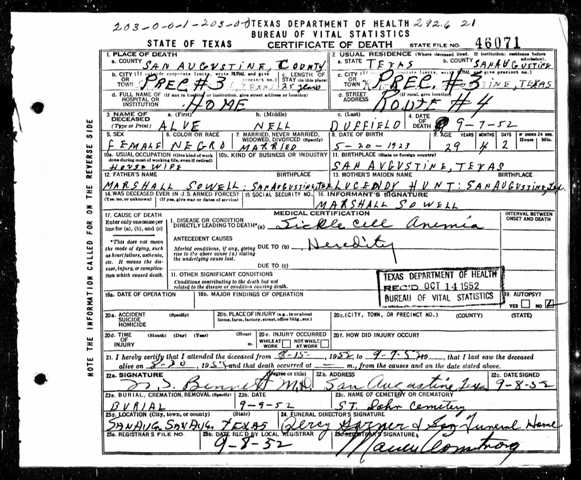 203-0-0-1-203-0-0 TEXAS DEPARTMENT OF HEALTH 2926 21
BUREAU OF VITAL STATISTICS
STATE OF TEXAS CERTIFICATE OF DEATH STATE FILE NO. 46071
1. PLACE OF DEATH 2. USUAL RESIDENCE (Where deceased lived. If institution: residence before admission).
a. COUNTY SAN AUGUSTINE, COUNTY a. STATE TEXAS b. COUNTY SAN AUGUSTINE
b. CITY OR TOWN PREC #3 TEXAS c. LENGTH OF STAY 25 years c. CITY OR TOWN PREC. #3 TINE, TEXAS
d. FULL NAME OF HOSPITAL OR INSTITUTION HOME d. STREET ADDRESS ROUTE #4
3. NAME OF DECEASED (Type or Print) a. (First) ALVE b. (Middle) NELL c. (Last) DUFFIELD 4. DATE OF DEATH 9-7-52
5. SEX FEMALE 6. COLOR OR RACE NEGRO 7. MARRIED, NEVER MARRIED, WIDOWED, DIVORCED (Specify) MARRIED 8. DATE OF BIRTH 5-20-1923 9. AGE YEARS 29 MONTHS 4 DAYS 2
10a. USUAL OCCUPATION (Give kind of work done during most of working life, even if retired) HOUSE WIFE 10b. KIND OF BUSINESS OR INDUSTRY 11. BIRTHPLACE (State or foreign country) SAN AUGUSTINE, TEXAS
12. FATHER'S NAME BIRTHPLACE 13. MOTHER'S MAIDEN NAME BIRTHPLACE
MARSHALL SOWELL: SAN AUGUSTINE, TEX LUGENDY HUNT: SAN AUGUSTINE, TEX.
14. WAS DECEASED EVER IN U.S. ARMED FORCES? (Yes, no, or unknown) (If yes, give war or dates of service) 15. SOCIAL SECURITY NO. 16. INFORMANT'S SIGNATURE
MARSHALL SOWELL
17. CAUSE OF DEATH MEDICAL CERTIFICATION INTERVAL BETWEEN ONSET AND DEATH
Enter only one cause per line for (a), (b), and (c)
I. DISEASE OR CONDITION DIRECTLY LEADING TO DEATH* (a) Sickle Cell Anemia
*This does not mean the mode of dying, such as heart failure, asthenia, etc. It means the disease, injury, or complication which caused death.
ANTECEDENT CAUSES
Morbid conditions, if any, giving rise to the above cause (a) stating the underlying cause last.
DUE TO (b) Heredity
DUE TO (c)
II. OTHER SIGNIFICANT CONDITIONS
Conditions contributing to the death but not related to the disease or condition causing death.
TEXAS DEPARTMENT OF HEALTH
REC'D OCT 14 1952
BUREAU OF VITAL STATISTICS
18a. DATE OF OPERATION 18b. MAJOR FINDINGS OF OPERATION 19. AUTOPSY? YES NO
20a. ACCIDENT SUICIDE HOMICIDE 20b. PLACE OF INJURY (e.g., in or about home, farm, factory, street, office bldg., etc.) 20c. (CITY, TOWN, OR PRECINCT NO.) (COUNTY) (STATE)
20d. TIME OF INJURY (Month) (Day) (Year) (Hour) 20e. INJURY OCCURRED WHILE AT WORK NOT WHILE AT WORK 20f. HOW DID INJURY OCCUR?
21. I hereby certify that I attended the deceased from 8-15- 1952 to 9-7-52, that I last saw the deceased
alive on 8-30 and that death occurred at m., from the causes and on the date stated above.
22a. SIGNATURE (Degree or title) 22b. ADDRESS 22c. DATE SIGNED
Bennett M.D. San Augustine Texas 9-8-52
23a. BURIAL, CREMATION, REMOVAL (Specify) BURIAL 23b. DATE 9-9-52 23c. NAME OF CEMETERY OR CREMATORY ST. John Cemetery
23d. LOCATION (City, town, or county) (State) SAN AUG. SAN AUG. TEXAS 24. FUNERAL DIRECTOR'S SIGNATURE Percy Garner & Son Funeral Home
25a. REGISTRAR'S FILE NO 25b. DATE REC'D BY LOCAL REGISTRAR 9-8-52 25c. REGISTRAR'S SIGNATURE Armstrong
NOTE THE INFORMATION CALLED FOR ON THE REVERSE SIDE